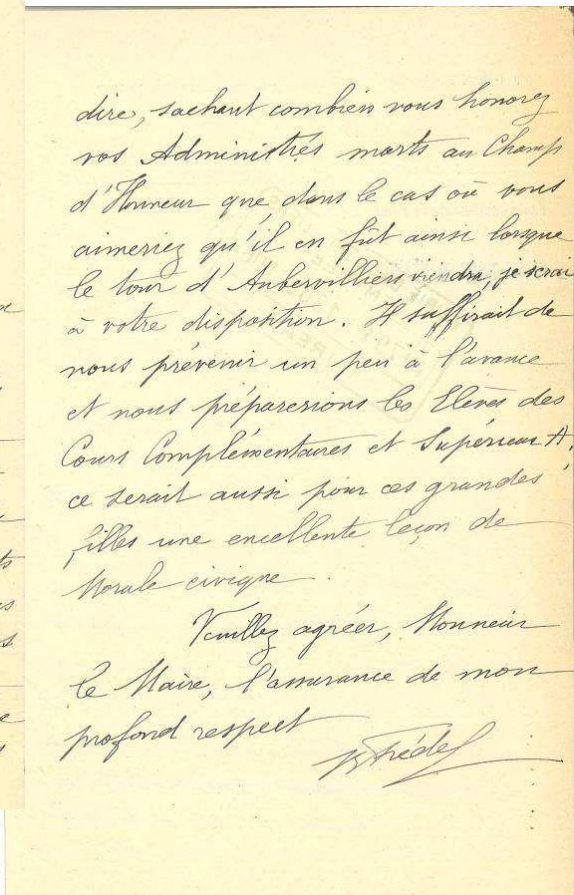 dire, sachant combien vous honorez
vos Administrés morts au Champ
d'Honneur que, dans le cas où vous
aimeriez qu'il en fût ainsi lorsque
le tour d'Aubervilliers viendra, je serai
à votre disposition. Il suffirait de
nous prévenir un peu à l'avance
et nous préparerions les Elèves des
Cours Complémentaires et Supérieur A,
ce serait aussi pour ces grandes
filles une excellente leçon de
Morale civique.
Veuillez agréer, Monsieur
le Maire, l'assurance de mon
profond respect